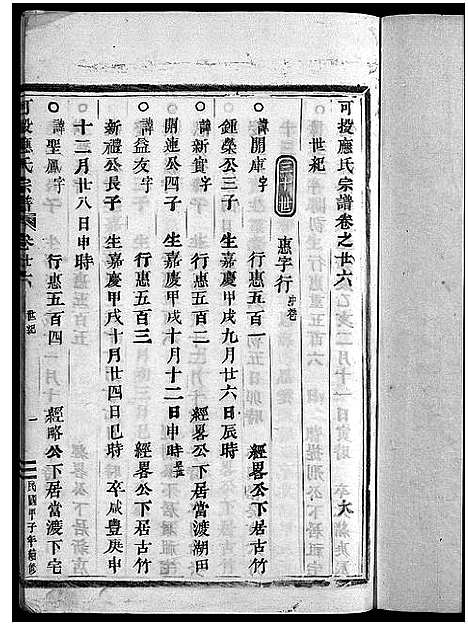 可投應氏宗譜卷之廿六
世紀
三十世 惠字行
諱開庫字 行惠五百一 經畧公下居古竹
鍾榮公三子 生嘉慶甲戌九月廿六日辰時
諱新實字 行惠五百二 經畧公下居當渡湖田
開連公四子 生嘉慶甲戌十月十二日申時
諱益友字 行惠五百三 經畧公下居古竹
新禮公長子 生嘉慶甲戌十月廿四日巳時 卒咸豐庚申
十二月廿八日申時
諱聖鳳字 行惠五百四 經略公下居當渡下宅
可投應氏宗譜 卷廿六 世紀 一 民國甲子年續修